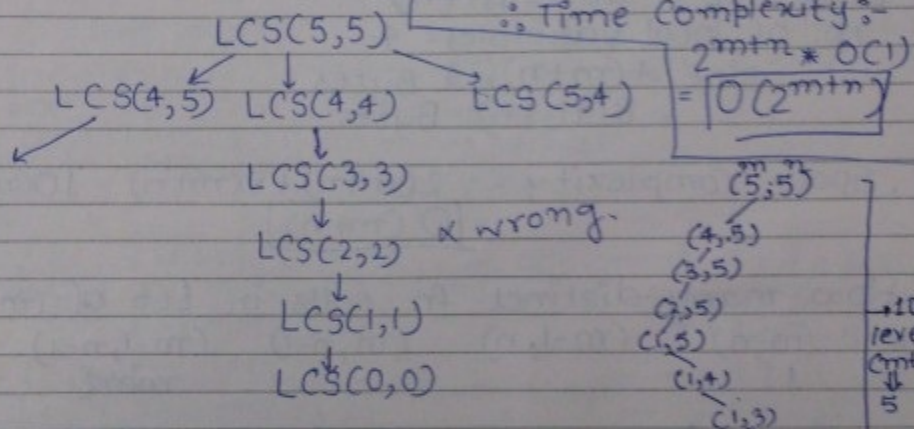 LCS(5,5)
∴ Time Complexity:-
2^m+n * O(1)
= O(2^m+n)
LCS(4,5) LCS(4,4) LCS(5,4)
LCS(3,3)
LCS(2,2) x wrong.
LCS(1,1)
LCS(0,0)
m n
(5,5)
(4,5)
(3,5)
(2,5)
(1,5)
(1,4)
(1,3)
5